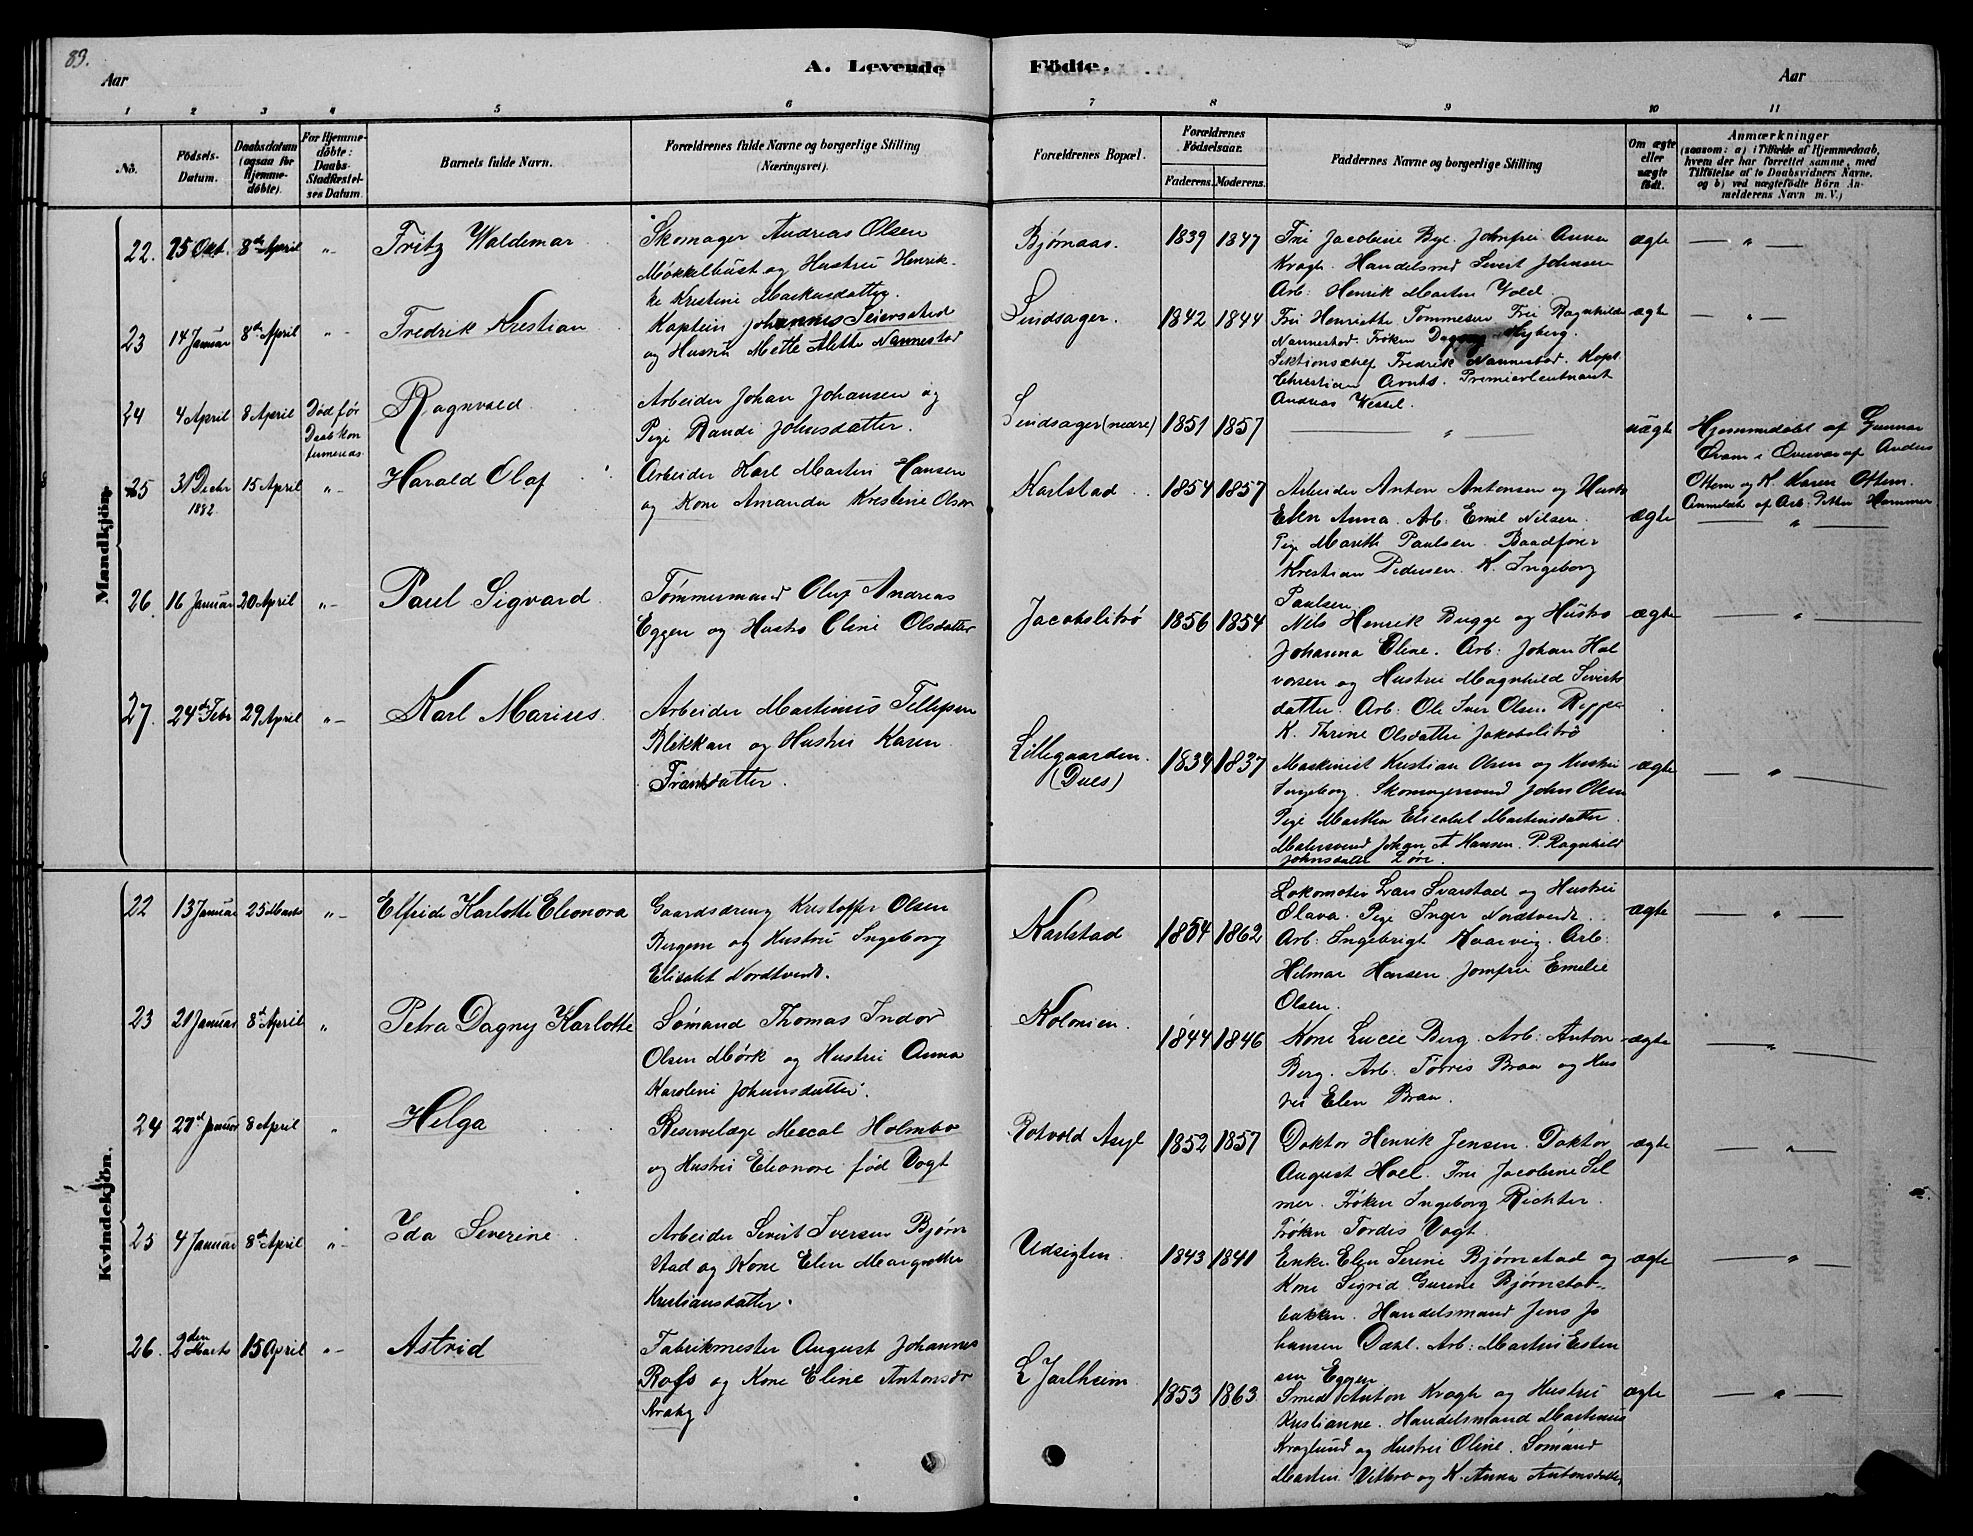 89.
Aar
A. Levende
Fødte.
Aar
1 2 3 4 5 6 7 8 9 10 11
No.
Fødsels-
Datum.
Daabsdatum
(ogsaa for
Hjemme-
døbte).
For Hjemme-
døbte:
Daabs-
Stadfæstel-
ses Datum.
Barnets fulde Navn.
Forældrenes fulde Navne og borgerlige Stilling
(Næringsvei).
Forældrenes Bopæl.
Forældrenes
Fødselsaar.
Faderens. Moderens.
Faddernes Navne og borgerlige Stilling
Om ægte
eller
uægte
født.
Anmærkninger
(saasom: a) i Tilfælde af Hjemmedaab,
hvem der har forrettet samme, med
Tilføielse af to Daabsvidners Navne,
og b) ved uægtefødte Børn An-
melderens Navn m. V.)
Mandkjøn.
22. 25 Okt. 8de April "- Fritz Waldemar
Skomager Andreas Olsen
Møkkelbust og Hustru Henrik-
ke Kristine Markusdatter.
Bjørnaas. 1839 1847
Fru Jacobine Bye. Jomfru Anna
Kragh. Handelsmd Sivert Johnsen
Arb: Henrik Martin Vold.
ægte — " —
23 14 Januar 8de April "- Fredrik Kristian
Kaptein Johannes Seierstad
og Hustru Mette Alette Nannestad
Sundsager. 1842 1844
Fru Henriette Tommesen Fru Ragnhild
Nannestad. Frøken Dagny Myberg.
Sektionschef Fredrik Nannestad. Kapt.
Christian Arntz. Premierleutnant
Andreas Wessel.
ægte — " —
24 4 April 8 April Død før
Daab kon
firmeres.
Ragnvald
Arbeider Johan Johansen og
Pige Randi Johnsdatter.
Sundsager (nedre) 1851 1857 — " — uægte
Hjemmedøbt af Gunnar
Øram i Overvær af Anders
Ottem og K. Karen Ottem.
Anmeldt af Arb. Petter Hammer
25 31 Decbr 1882 15 April "- Harald Olaf
Arbeider Karl Martin Hansen
og Kone Amanda Kristine Olsen
Karlstad 1854 1857
Arbeider Anton Antonsen og Hustr
Elen Anna. Arb: Emil Nilsen.
Pige Marith Paulsen. Baadfører
Krestian Pedersen. K. Ingeborg
Paulsen.
ægte — " —
26. 16 Januar 20 April "- Paul Sigvard
Tømmermand Oluf Andreas
Eggen og Hustro Oline Olsdatter
Jacobslitrø 1856 1854
Nils Henrik Bugge og Hustro
Johanna Eline. Arb: Johan Hal
vorsen og Hustru Magnhild Siverts
datter. Arb: Ole Iver Olsen Reppe
K. Thrine Olsdatter Jakobslitrø
ægte — " —
27. 24de Febr 29 April "- Karl Marius.
Arbeider Martinus Tellefsen
Blekkan og Hustru Karen
Fransdatter.
Lillegaarden
(Dues) 1834 1837
Maskinist Kristian Olsen og Hustru
Ingeborg. Skomagersvend John Olsen
Pige Martha Elisabet Martinsdatter.
Malersvend Johan A Hansen. P. Ragnhild
Johnsdatter
ægte — " —
Kvindekjøn.
22 13 Januar 25 Marts "- Elfride Karlotte Eleonora
Gaardsdreng Kristoffer Olsen
Bergem og Hustru Ingeborg
Elisabet Nordtvedt.
Karlstad 1854 1862
Lokomotor Lars Svarstad og Hustru
Olava. Pige Inger Nordtvedt.
Arb: Ingebrigt Kaarvig. Arb:
Hilmar Hansen. Jomfru Emelie
Olsen.
ægte — " —
23 21 Januar 8de April " Petra Dagny Karlotte
Sømand Thomas Indor
Olsen Mørk og Hustru Anna
Karoline Johansdatter.
Kolonien. 1844 1846
Kone Lucie Berg. Arb: Anton
Berg. Arb. Torris Braa og Hus
tru Elen Braa.
ægte — " —
24 27d Januar 8 April " Helga
Reservelæge Mecal Holmbo
og Hustru Eleonore født Vogt
Rotvold Asyl 1852 1857
Doktor Henrik Jensen. Doktor
August Holl. Fru Jacobine Sel
mer. Frøken Ingeborg Richter.
Frøken Tordis Vogt.
ægte — " —
25 4 Januar 8de April "- Ida Severine
Arbeider Sivert Iversen Bjørn
stad og Kone Elen Margrethe
Kristiansdatter.
Udsigten. 1843 1841
Enke Elen Serine Bjørnstad og
Kone Sigrid Gurine Bjørnstad-
bakken. Handelsmand Jens Jo
hansen Dahl. Arb: Martin Esten
sen Eggen
ægte — " —
26. 2den Marts 15 April "- Astrid
Fabrikmester August Johannes
Rofs og Kone Eline Antonsdr
Kragh
L Jarlheim. 1853 1863
Smed Anton Kragh og Hustru
Kristianne. Handelsmand Martinus
Kroglund og Hustru Oline. Sømand
Martin Vitbro og K. Anna Antonsdatter,
ægte — " —